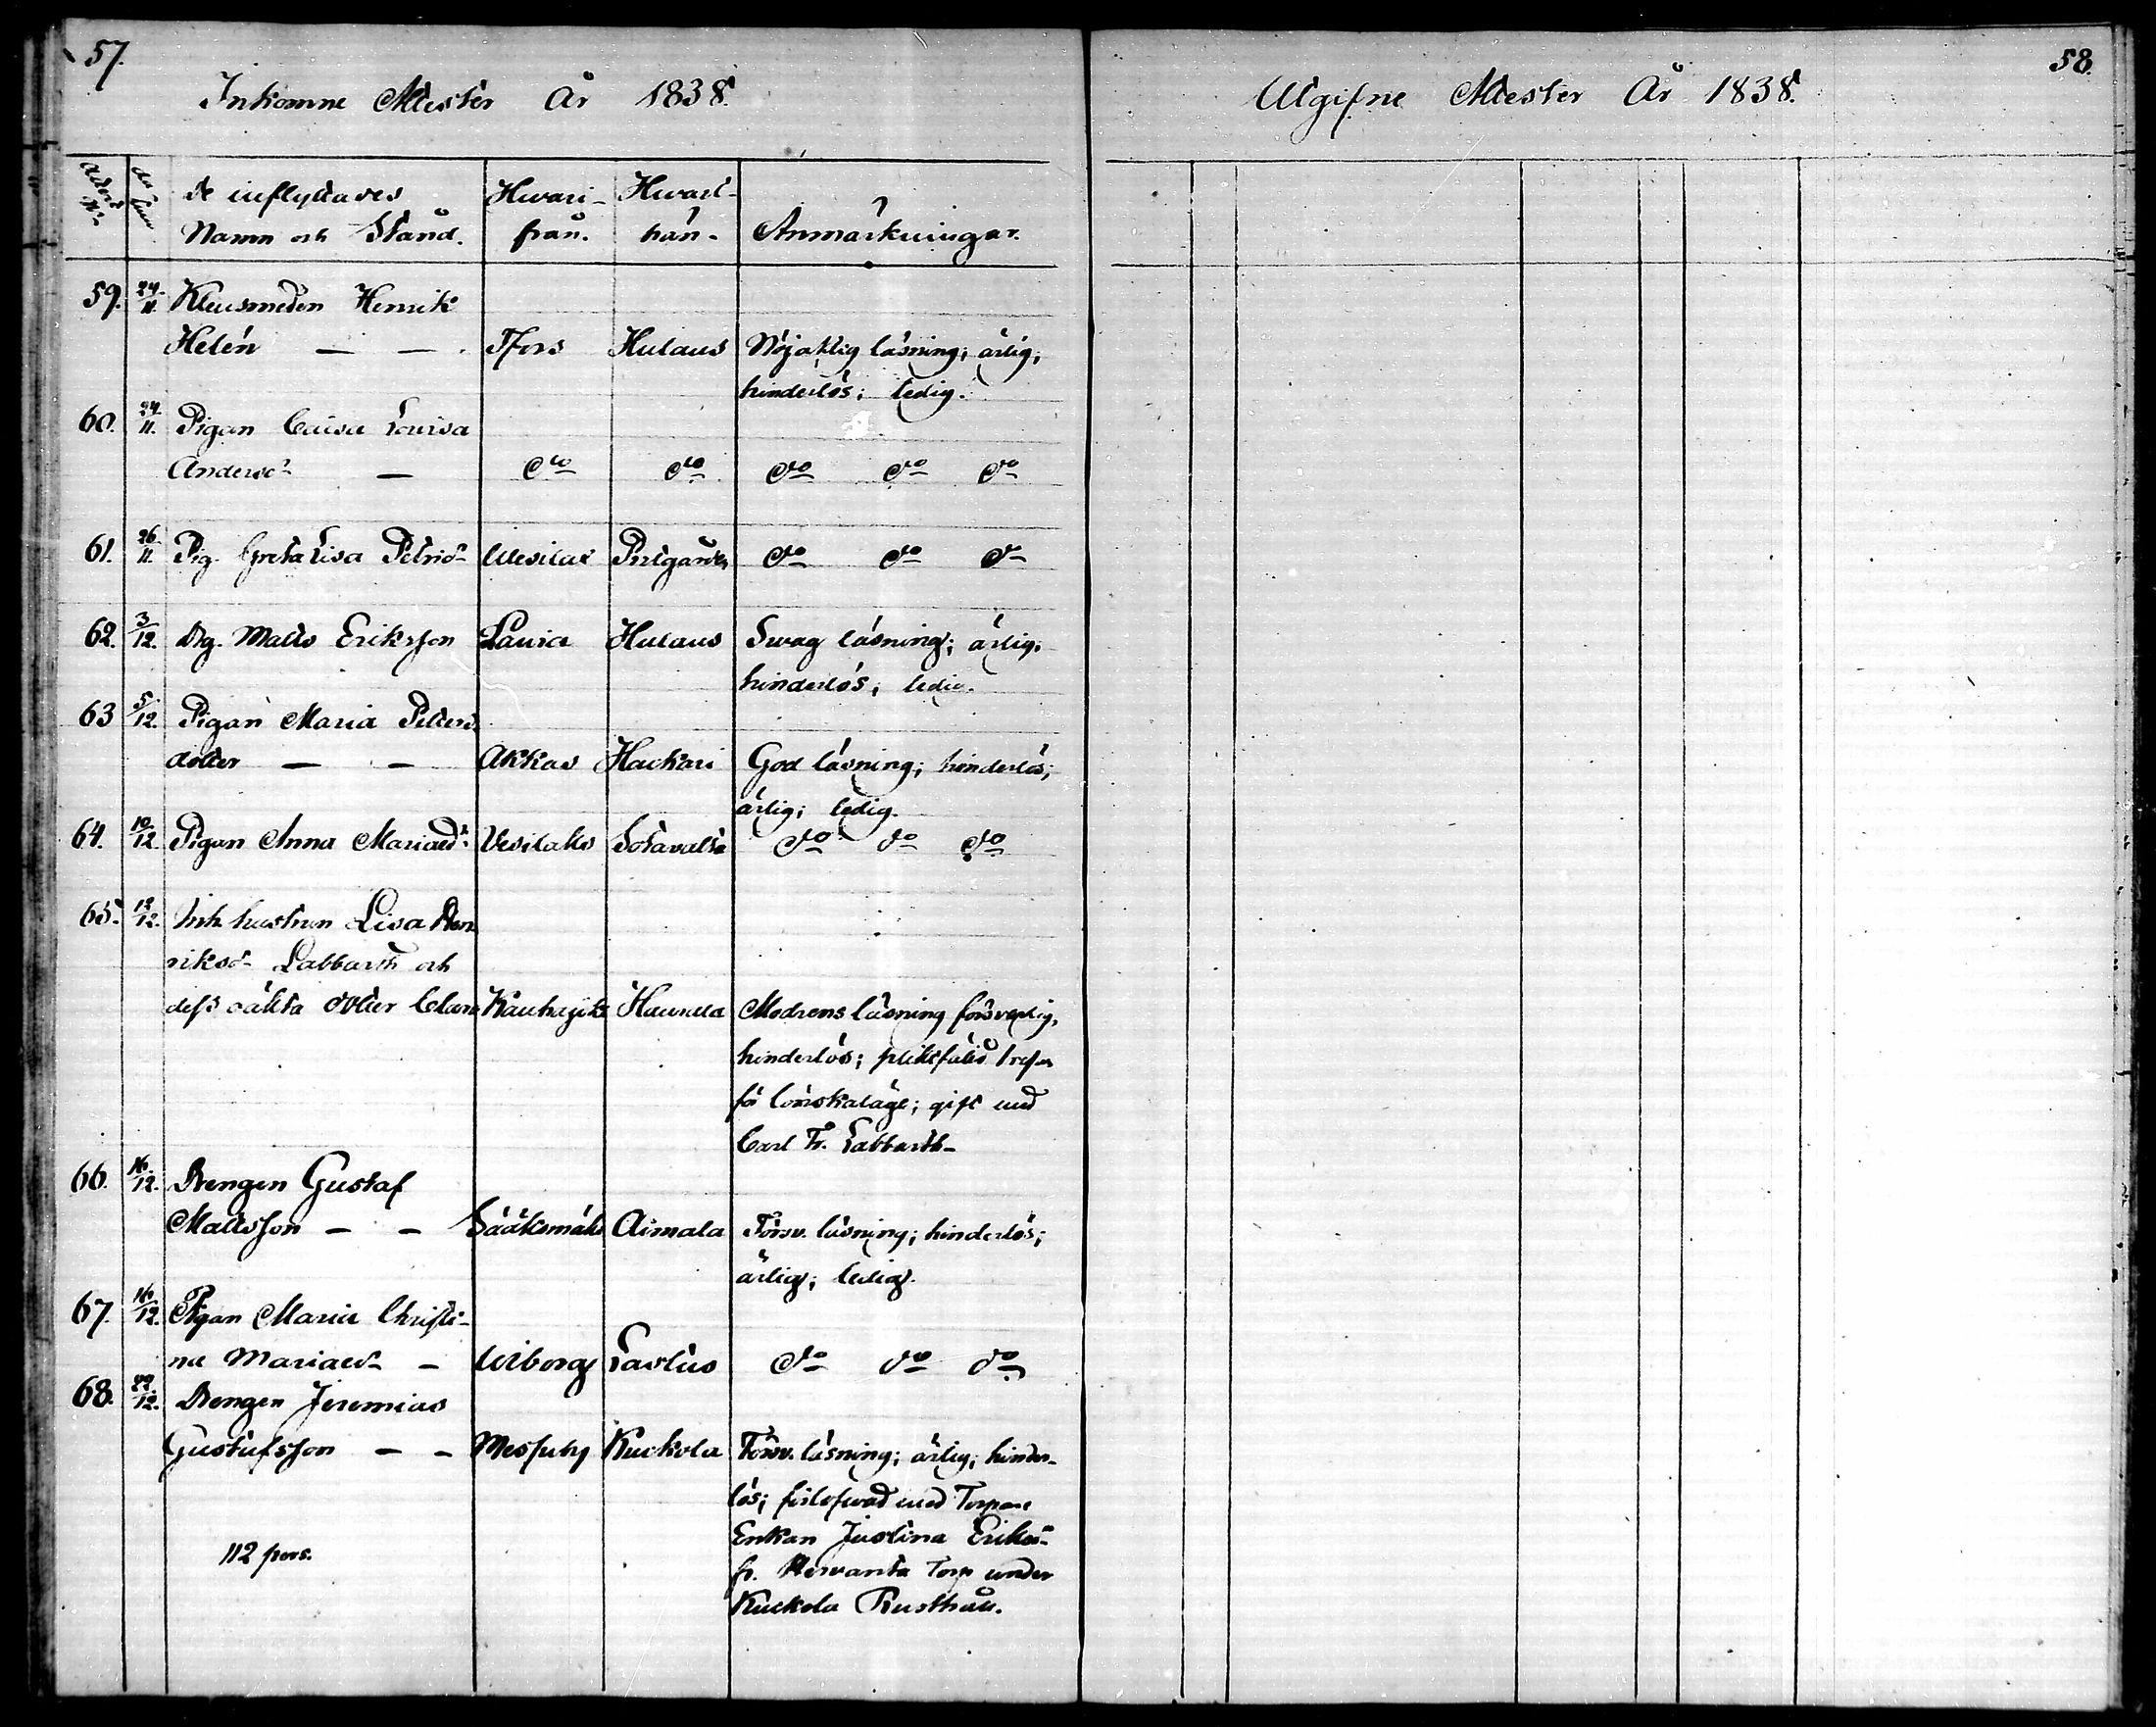 57.
Inkomne Attester År 1838.
Attest
N:o
de inflyttades
Namn och Stånd.
Hvari-
från.
Hvart-
hän.
Anmärkningar.
59. 24/11. Klensmeden Henrik
Helén — — Tfors Hulaus Nöjaktig läsning; ärlig;
hinderlös; ledig.
60. 24/11. Pigan Caisa Lovisa
Andersd:r — d:o d:o d:o d:o d:o
61. 26/11. Pig. Greta Lisa Petrid:r Wesilax Pirlgårds d:o d:o d:o
62. 3/12. Drg. Matts Eriksson Lauxa Hulaus Swag läsning; ärlig;
hinderlös; ledig.
63 5/12. Pigan Maria Petters
dotter — — Akkas Hackari God läsning; hinderlös;
ärlig; ledig.
64. 10/12. Pigan Anna Mariaed:r Vesilaks Sotavalta d:o d:o d:o
65. 12/12. Inh. hustrun Lisa Hen
riksd:r Labbarth och
dess oäkta dotter Clara Kauhajoki Modrens läsning försvarlig,
hinderlös; pliktfälld 1 resa
för lönskaläge; gift med
Carl Fr. Labbarth.
66. 16/12. Drengen Gustaf
Mattsson — — Sääksmäki Aimala Försv. läsning; hinderlös;
ärlig; ledig.
67. 16/12. Pigan Maria Christi-
na Mariaed:r — Wiborg Lastus d:o d:o d:o
68. 29/12. Drengen Jeremias
Gustafsson — — Messuby Kuckola Försv. läsning; ärlig; hinder-
lös; förlofwad med Torpare
Enkan Justina Eriksd:r
fr. Hervanta Torp under
Kuckola Rusthåll.
112 pers.
58.
Utgifne Attester År 1838.